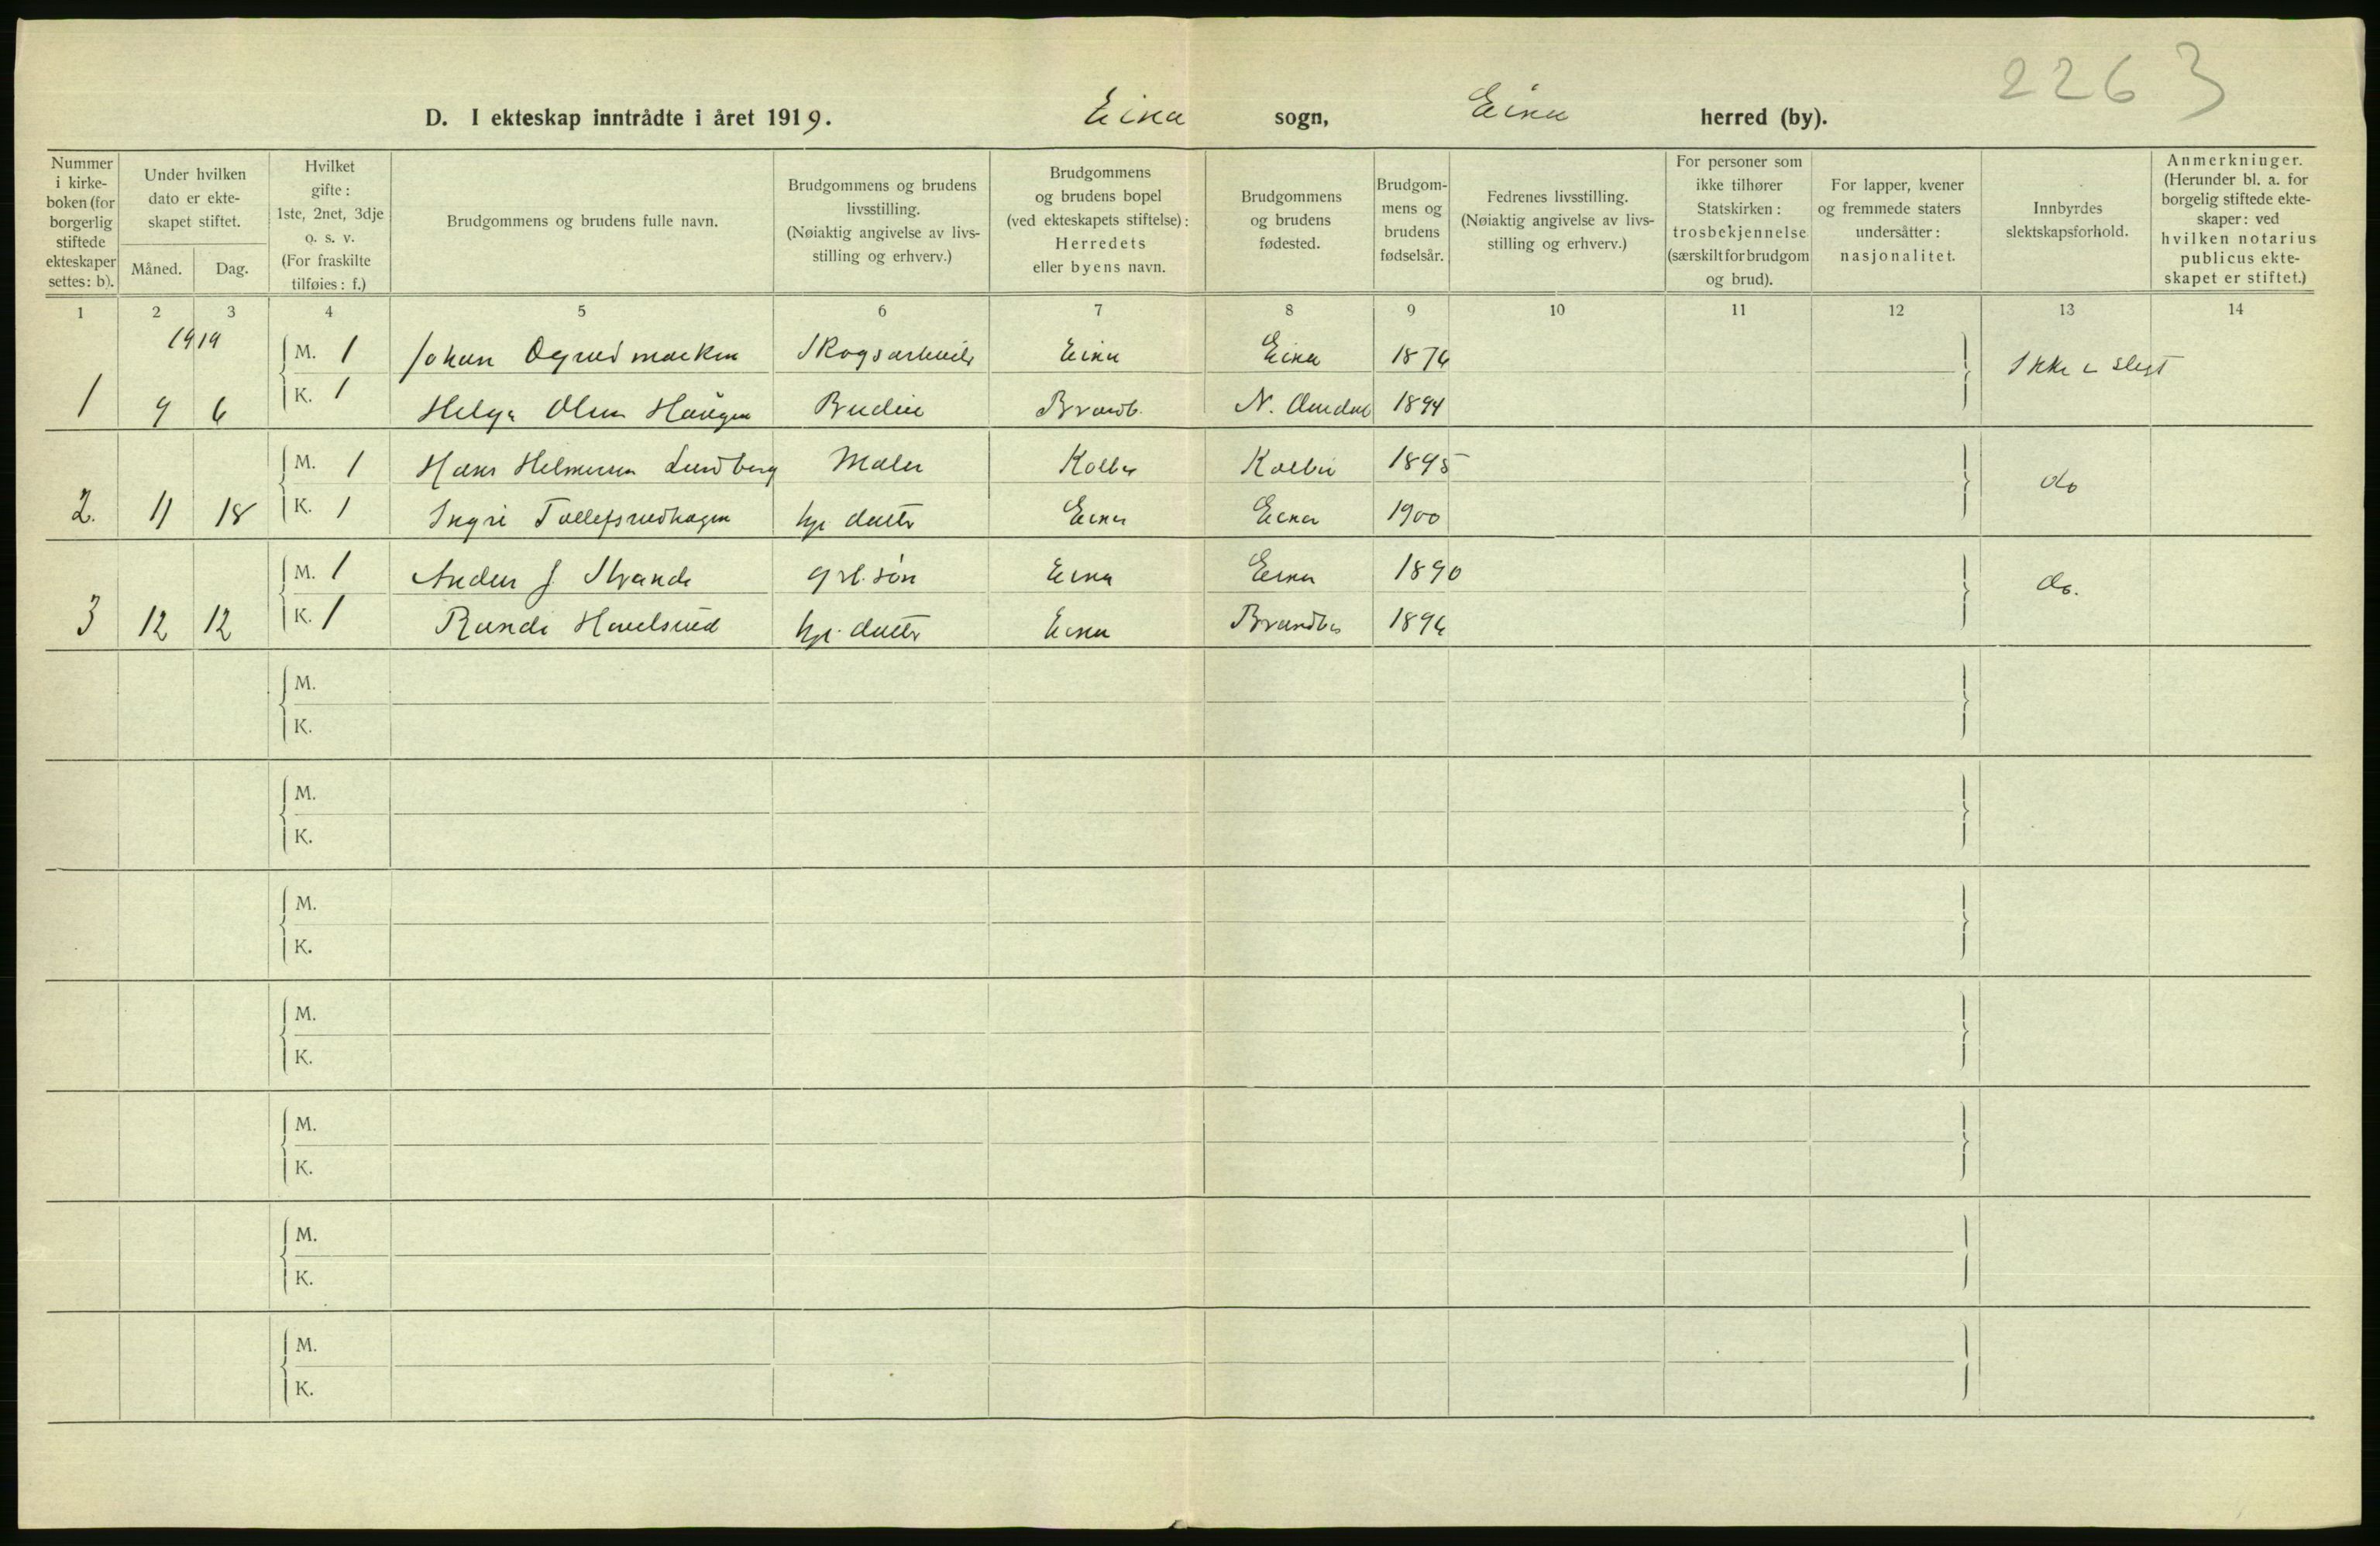 2263
D. I ekteskap inntrådte i året 1919. Eina sogn, Eina herred (by).
Nummer i kirke-boken (for borgerlig stiftede ekteskaper settes: b).
Under hvilken dato er ekte-skapet stiftet.
Måned. Dag.
Hvilket gifte: 1ste, 2net, 3dje o. s. v. (For fraskilte tilføies: f.)
Brudgommens og brudens fulle navn.
Brudgommens og brudens livsstilling. (Nøiaktig angivelse av livs-stilling og erhverv.)
Brudgommens og brudens bopel (ved ekteskapets stiftelse): Herredets eller byens navn.
Brudgommens og brudens fødested.
Brudgom-mens og brudens fødselsår.
Fedrenes livsstilling. (Nøiaktig angivelse av livs-stilling og erhverv.)
For personer som ikke tilhører Statskirken: trosbekjennelse (særskilt for brudgom og brud).
For lapper, kvener og fremmede staters undersåtter: nasjonalitet.
Innbyrdes slektskapsforhold.
Anmerkninger. (Herunder bl. a. for borgelig stiftede ekte-skaper: ved hvilken notarius publicus ekte-skapet er stiftet.)
1 2 3 4 5 6 7 8 9 10 11 12 13 14
1919
M. 1 Johan Skogsarbeider Eina Eina 1876 Ikke i slegt
1 9 6 K. 1 Helga Olsen Haugen Budeie Brandb. 1894
M. 1 Hans Helmersen Lundberg Maler Kolbu Kolbu 1895 do
2. 11 18 K. 1 Ingri Tollefsrudhagen hj. datter Eina Eina 1900
M. 1 Anders J Strande grb. søn Eina Eina 1890 do.
3 12 12 K. 1 Randi Havelsrud hj. datter Eina Brandbu 1896
M.
K.
M.
K.
M.
K.
M.
K.
M.
K.
M.
K.
M.
K.